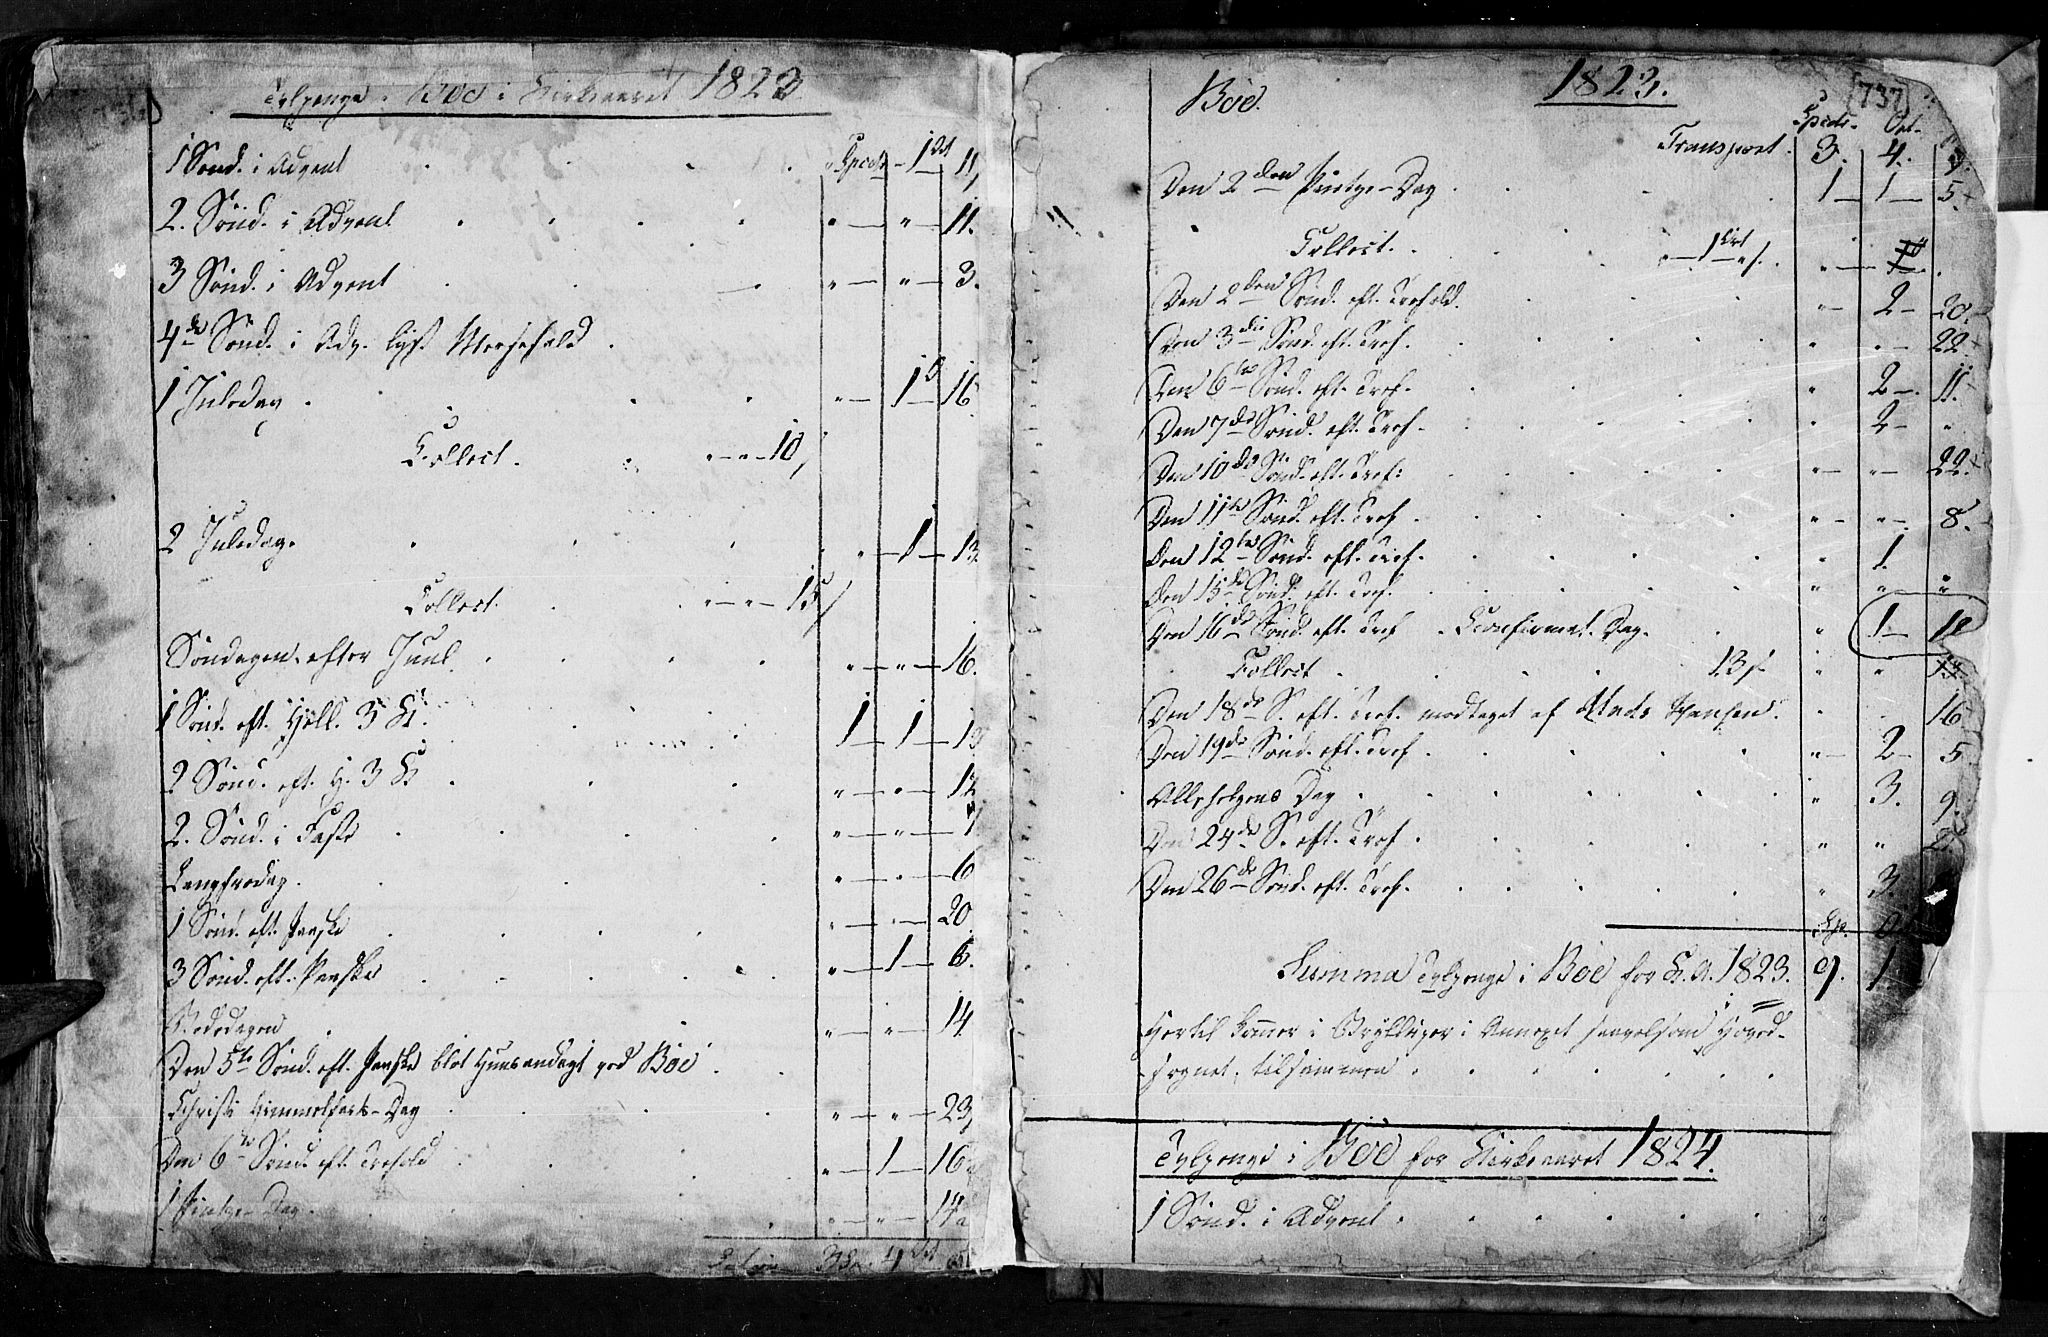 Tvlpenge i Böe i Kirkeaaret 1823
1 Sönd. i Advent . . . " Specd – 1 Ort 11
2. Sönd. i Advent . . . " – " – 11.
3 Sönd. i Advent . . – " – " – 3.
4de Sönd. i Adv. lyst Messefald .
1 Juledag . . . . " – 1 – 16
Collect. . " – " – 10
2 Juledag. . . . " – 1 – 13
Collect. . . " – " – 15
Söndagen efter Juul . . . " – " – 16.
1 Sönd. eft. Hell. 3 K. . . 1 – 1 – 13
2 Sönd. eft. H. 3 K . . . " – " – 12
2. Sönd. i Faste . . . " – "
Langfredag. . . . " – " – 6
1 Sönd. eft. Paaske . . . " – " – 20
3 Sönd. eft. Paaske . . . " – 1 – 6.
Bededagen . . . " – " – 14
Den 5te Sönd. eft. Paaske blot Huusandagt ved Böe . .
Christi Himmelfarts-Dag . . . " – " – 23
Den 6te Sönd. eft. . . " – 1 – 16
1 Pintse-Dag. . . . " – " – 14
3 Sp. 4 Ort
Böe. 1823. 737
Specd. Ort.
Transport. 3. 4.
Den 2den Pintse-Dag . . . 1 – 1 – 5.
Collect. . . . " – 1 Ort – "
Den 2den Sönd. eft. Trefold. . . " – 2 – 20.
Den 3die Sönd. eft. Tref. . . . " – 22.
Den 6te Sönd. eft. Tref. . . " 2 – 11.
Den 7de Sönd. eft. Tref. . . . " 2 – "
Den 10de Sönd. eft. Tref: . . . " – " – 22.
Den 11te Sönd. eft. Tref . . . " – " – 8.
Den 12te Sönd. eft. Tref. . . . " 1.
Den 15de Sönd. eft. Tref. . . . " " "
Den 16de Sönd. eft. Tref . Confirmat. Dag. . " 1 –
Collect . . . 13 s. " "
Den 18de S. eft. Tref. modtaget af Mads Hansen. 16
Den 19de Sönd. eft. Tref. . . . " – 2 – 5
Allehelgens Dag . . . . " 3. 9.
Den 24de S. eft. Tref . . . . " "
Den 26de Sönd. eft. Tref. . . . " 3.
Sp. O
Summa Tvlpenge i Böe for K. A. 1823. 9. 1.
Hertil kommer i Brylluper i Annexet saavelsom i Hoved-
sognet, tilsammen . . . . .
Tvlpenge i Böe for Kirkeaaret 1824.
1 Sönd. i Advent . . . . . "